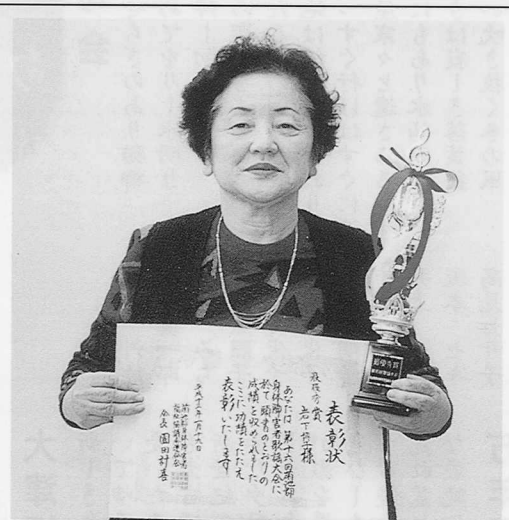 表彰状
最優秀賞
岩下悦子様
あなたは第十六回菊池郡
身体障害者歌謡大会に
於て頭書のとおりの
成績を収められました
ここに功績をたたえ
表彰いたします
平成十三年一月十九日
会長 園田村喜
最優秀賞